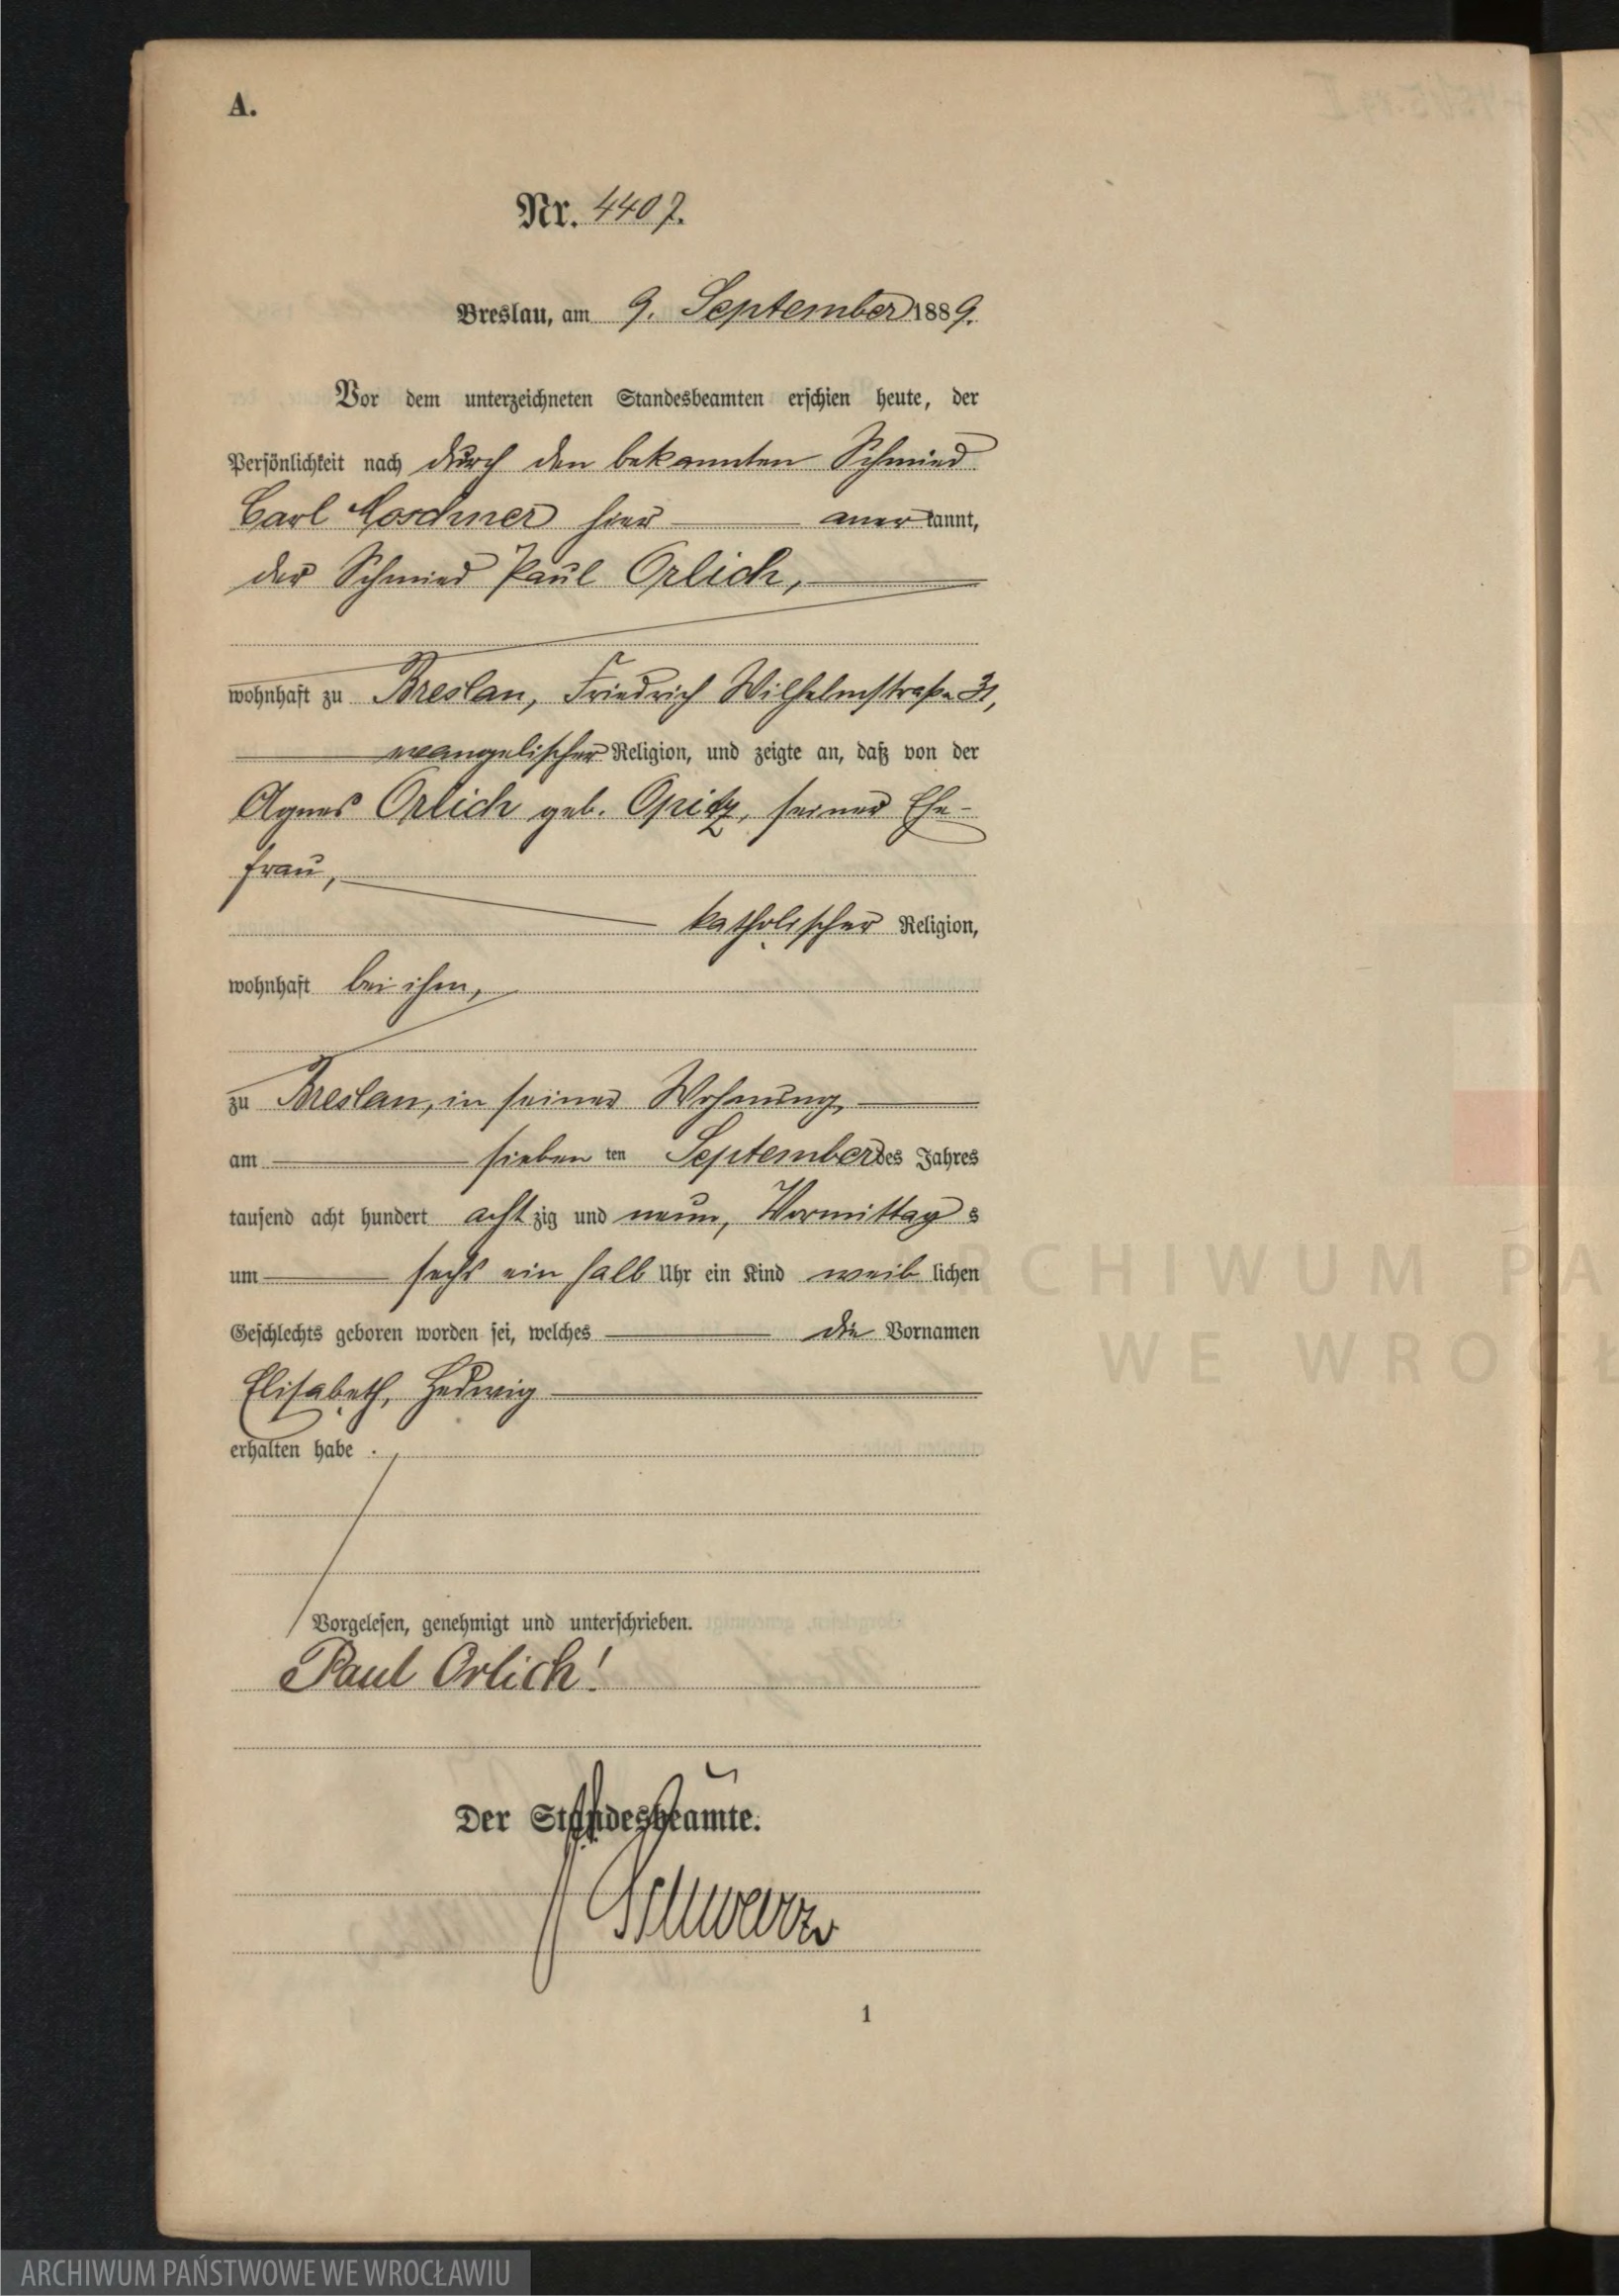 A.
Nr. 4407.
Breslau, am 9. September 1889.
Vor dem unterzeichneten Standesbeamten erschien heute, der
Persönlichkeit nach durch den bekannten Schmied
Carl hier anerkannt,
der Schmied Paul Orlich,
wohnhaft zu Breslau, Friedrich Wilhelmstraße 31,
evangelischer Religion, und zeigte an, daß von der
Agnes Orlich geb. Opitz, seiner Ehe-
frau,
katholischer Religion,
wohnhaft bei ihm,
zu Breslau, in seiner Wohnung,
am siebenten September des Jahres
tausend acht hundert achtzig und neun, Vormittags
um sechs ein halb Uhr ein Kind weiblichen
Geschlechts geboren worden sei, welches die Vornamen
Elisabeth, Hedwig
erhalten habe.
Vorgelesen, genehmigt und unterschrieben.
Paul Orlich!
Der Standesbeamte.
Schwarz
1
ARCHIWUM PA
WE WROCŁ
ARCHIWUM PAŃSTWOWE WE WROCŁAWIU